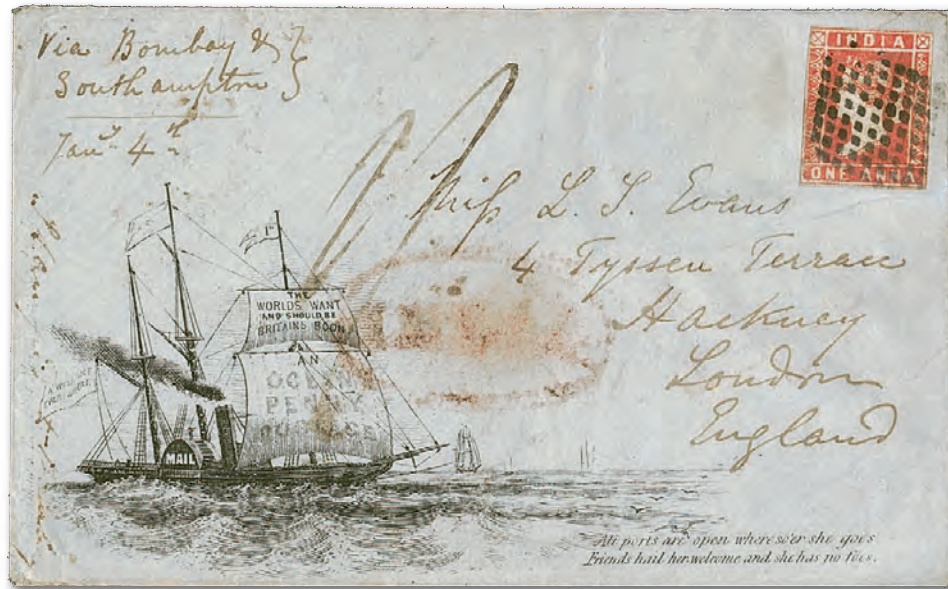 Via Bombay &
Southampton
Jany 4th
INDIA
ONE ANNA
Miss L. S. Evans
4 Tyssen Terrace
Hackney
London
England
THE
WORLDS WANT
AND SHOULD BE
BRITAINS BOON
AN
OCEAN
PENNY
POSTAGE
MAIL
All ports are open where so'er she goes
Friends hail her welcome and she has no foes.